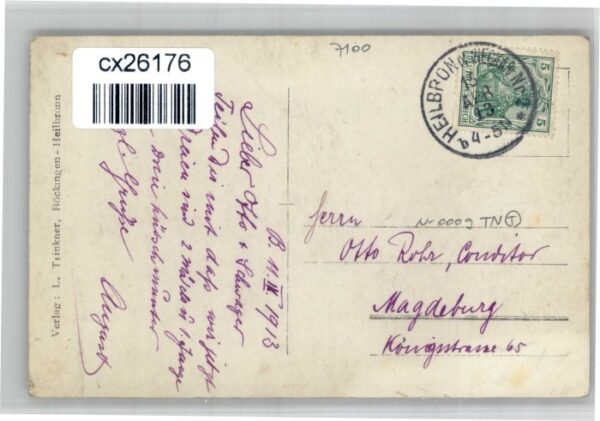 cx26176
7100
HEILBRONN
4-5
5
5
Verlag: L. Trinkner, Böckingen-Heilbronn
B. 11. 1913
Lieber Otto & Schwager
Teilen dir mit daß wir jetzt
und 2 Mädels 1 Junge
drin
Grüße
August
Herrn
No 0009 TN T
Otto Rohr, Conditor
Magdeburg
Königstrasse 65